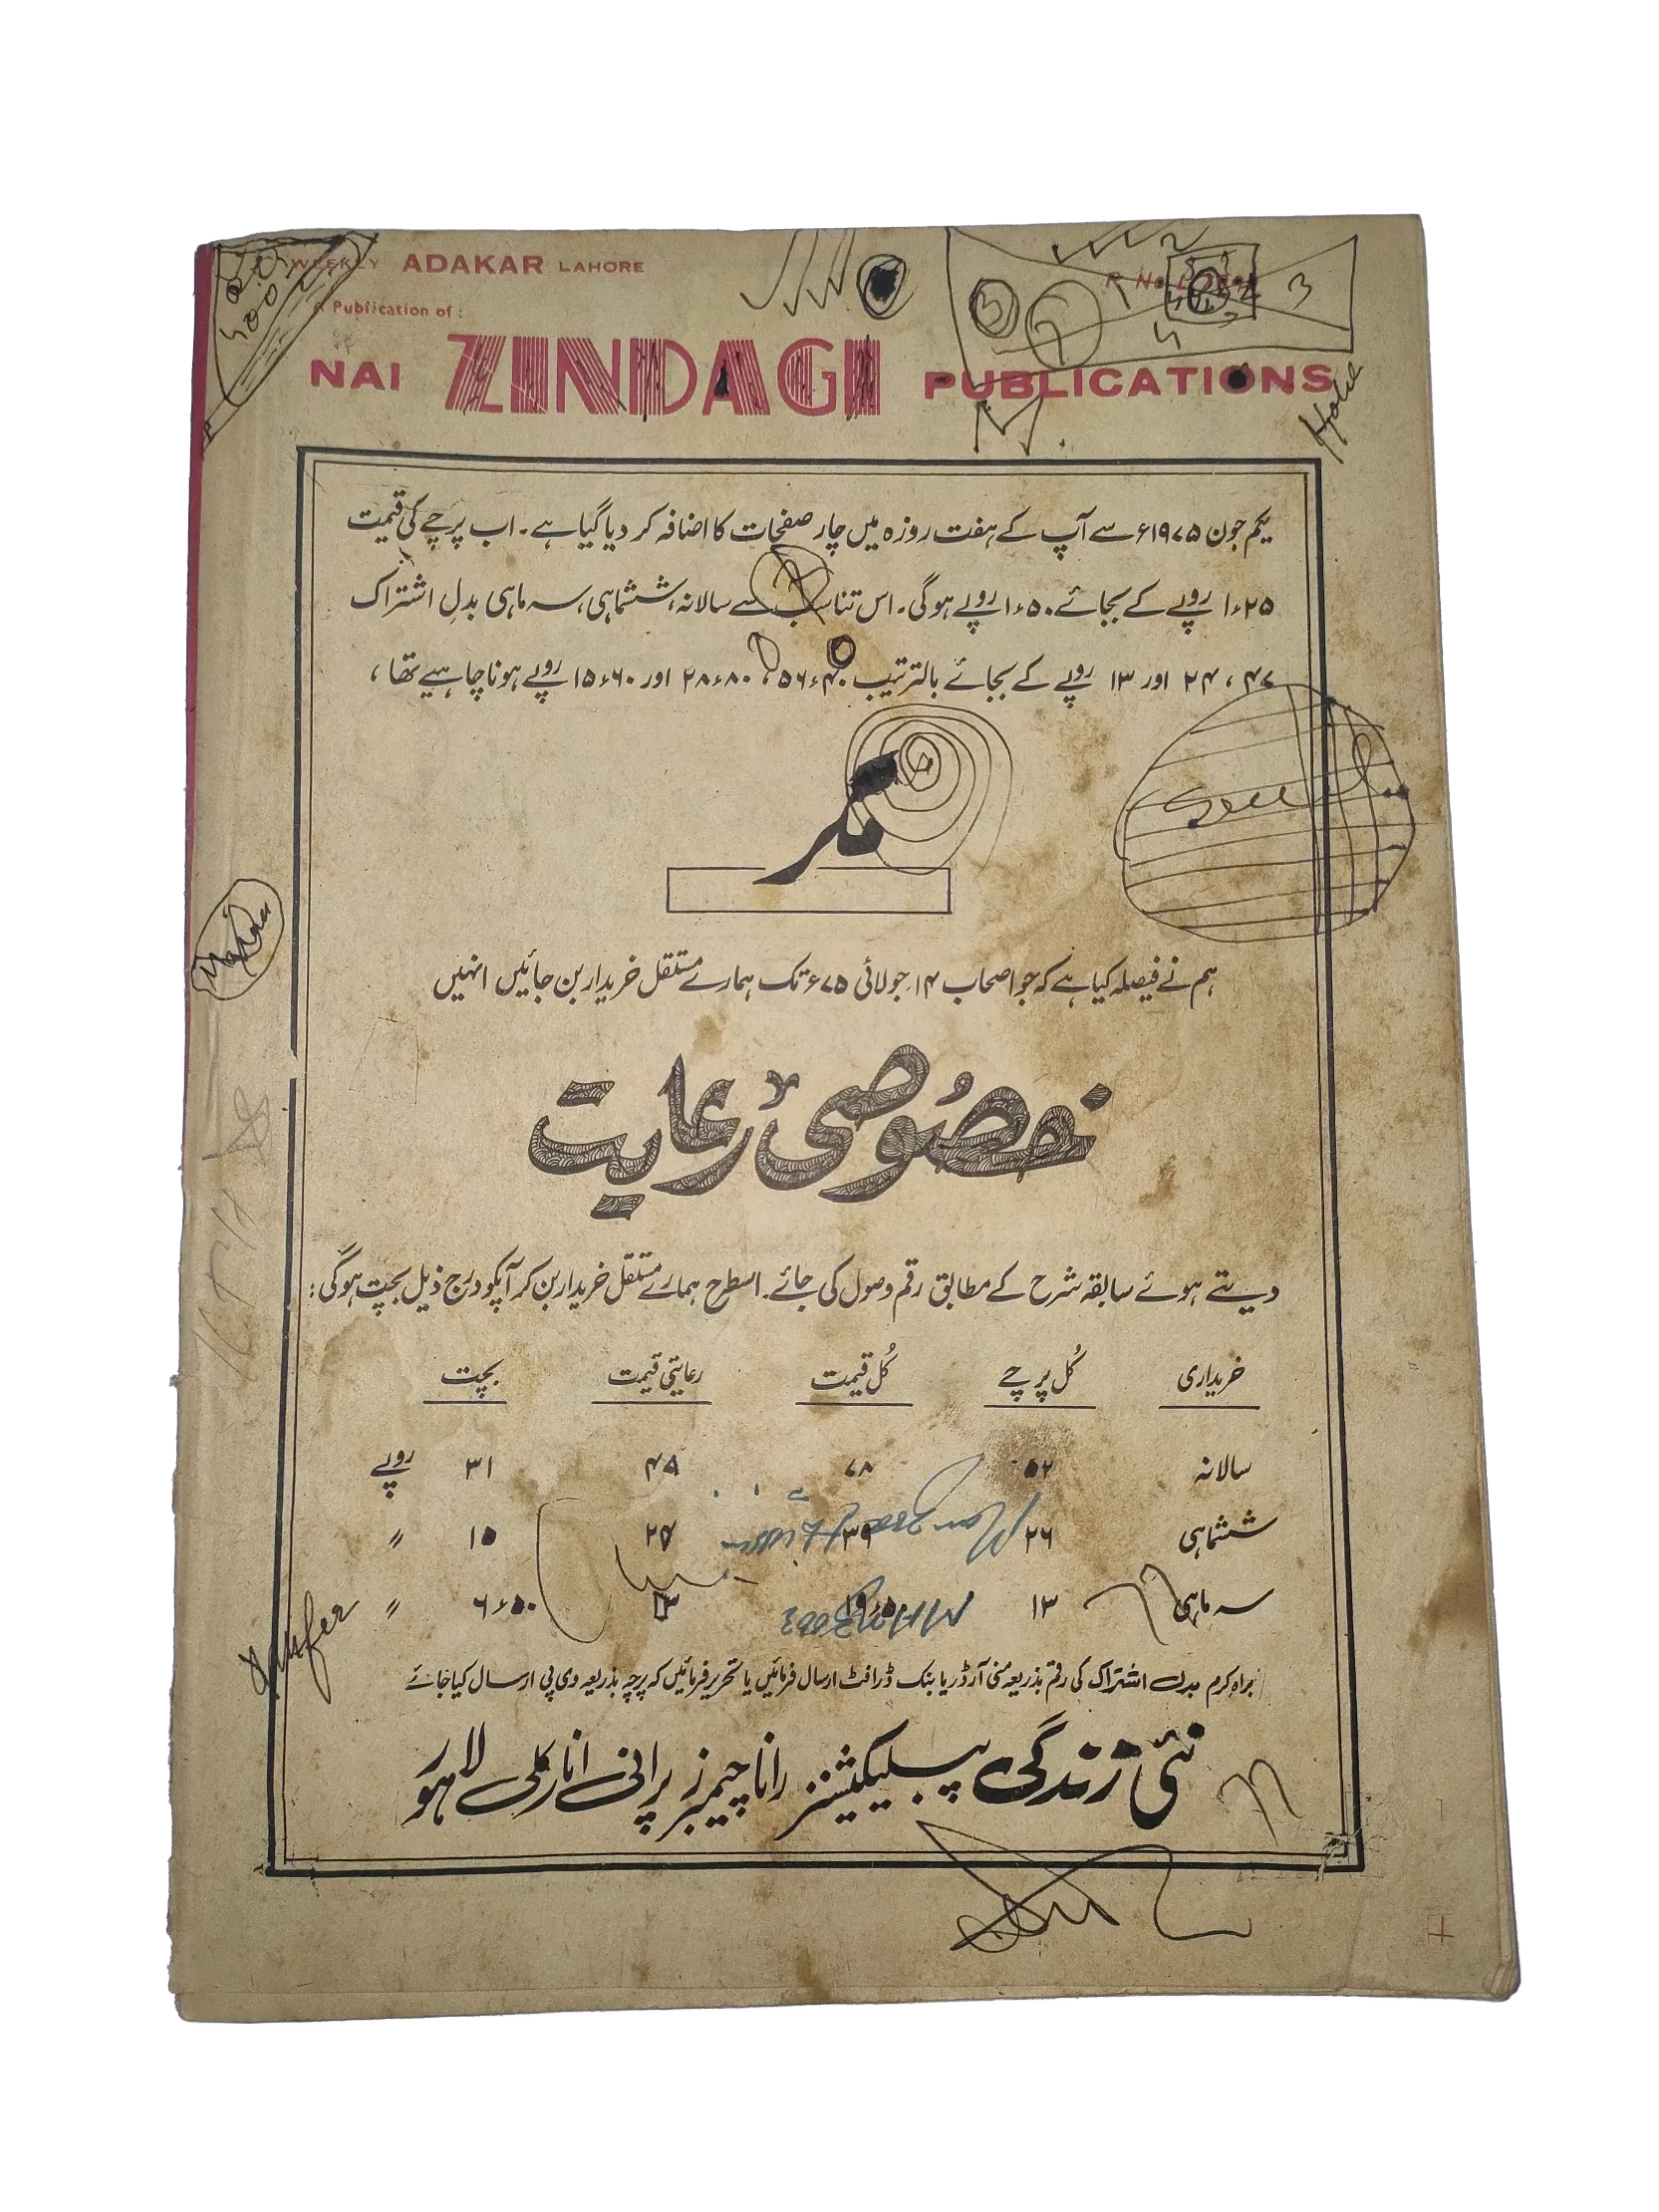 WEEKLY ADAKAR LAHORE
A Publication of :
NAI ZINDAGI PUBLICATIONS
یکم جون ۱۹۷۵ء سے آپ کے ہفت روزہ میں چار صفحات کا اضافہ کر دیا گیا ہے۔ اب پرچے کی قیمت
۱٫۲۵ روپے کے بجائے ۱٫۵۰ روپے ہوگی۔ اس تناسب سے سالانہ، ششماہی، سہ ماہی بدلِ اشتراک
۴۷، ۲۴ اور ۱۳ روپے کے بجائے بالترتیب ۵۶٫۴۰، ۲۸٫۸۰ اور ۱۵٫۶۰ روپے ہونا چاہیے تھا،
مگر
ہم نے فیصلہ کیا ہے کہ جو اصحاب ۱۴ جولائی ۷۵ء تک ہمارے مستقل خریدار بن جائیں انہیں
خصُوصی رعایت
دیتے ہوئے سابقہ شرح کے مطابق رقم وصول کی جائے۔ اسطرح ہمارے مستقل خریدار بن کر آپکو درج ذیل بچت ہوگی:
خریداری کُل پرچے کُل قیمت رعایتی قیمت بچت
سالانہ ۵۲ ۷۸ ۳۱ روپے
ششماہی ۲۶ ۳۹ ۱۵ "
سہ ماہی ۱۳ ۱۹٫۵۰ ۱۳ ۶٫۵۰ "
براہِ کرم بدل اشتراک کی رقم بذریعہ منی آرڈر یا بنک ڈرافٹ ارسال فرمائیں یا تحریر فرمائیں کہ پرچہ بذریعہ وی پی ارسال کیا جائے
نئی زندگی پبلیکیشنز رانا چیمبرز پرانی انارکلی لاہور